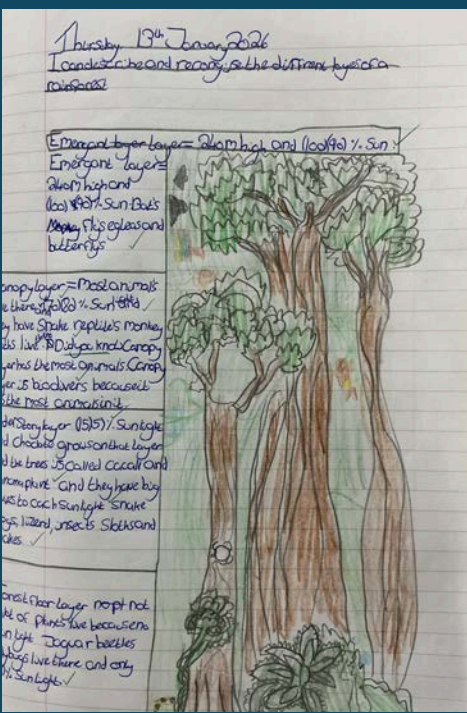 Thursday 13th January 2026
I can describe and recongise the different layes of a
rainforest
Emergant layer = 240m high and (100)(90) % Sun
Emergent layer =
240m high and
(100) (90)% Sun Bat's
Flys egleas and
butterflys
anopy layer = Most animals
ve there % Sun
ey have Snake reptile's monkey
ths live. Did you know Canopy
yer has the most animals Canopy
yer is biodivers because it
s the most animals in it.
derStory layer (15)5)% Sunlight
d Choclate grows on that layer
d the trees is called cacao and
plant and they have big
ves to cach Sunlight Snake
ogs, lizerd, insects Sloths and
akes.
orest floor layer not
lot of plants live because no
n light Jaguar beetles
bugs live there and only
% Sunlight.